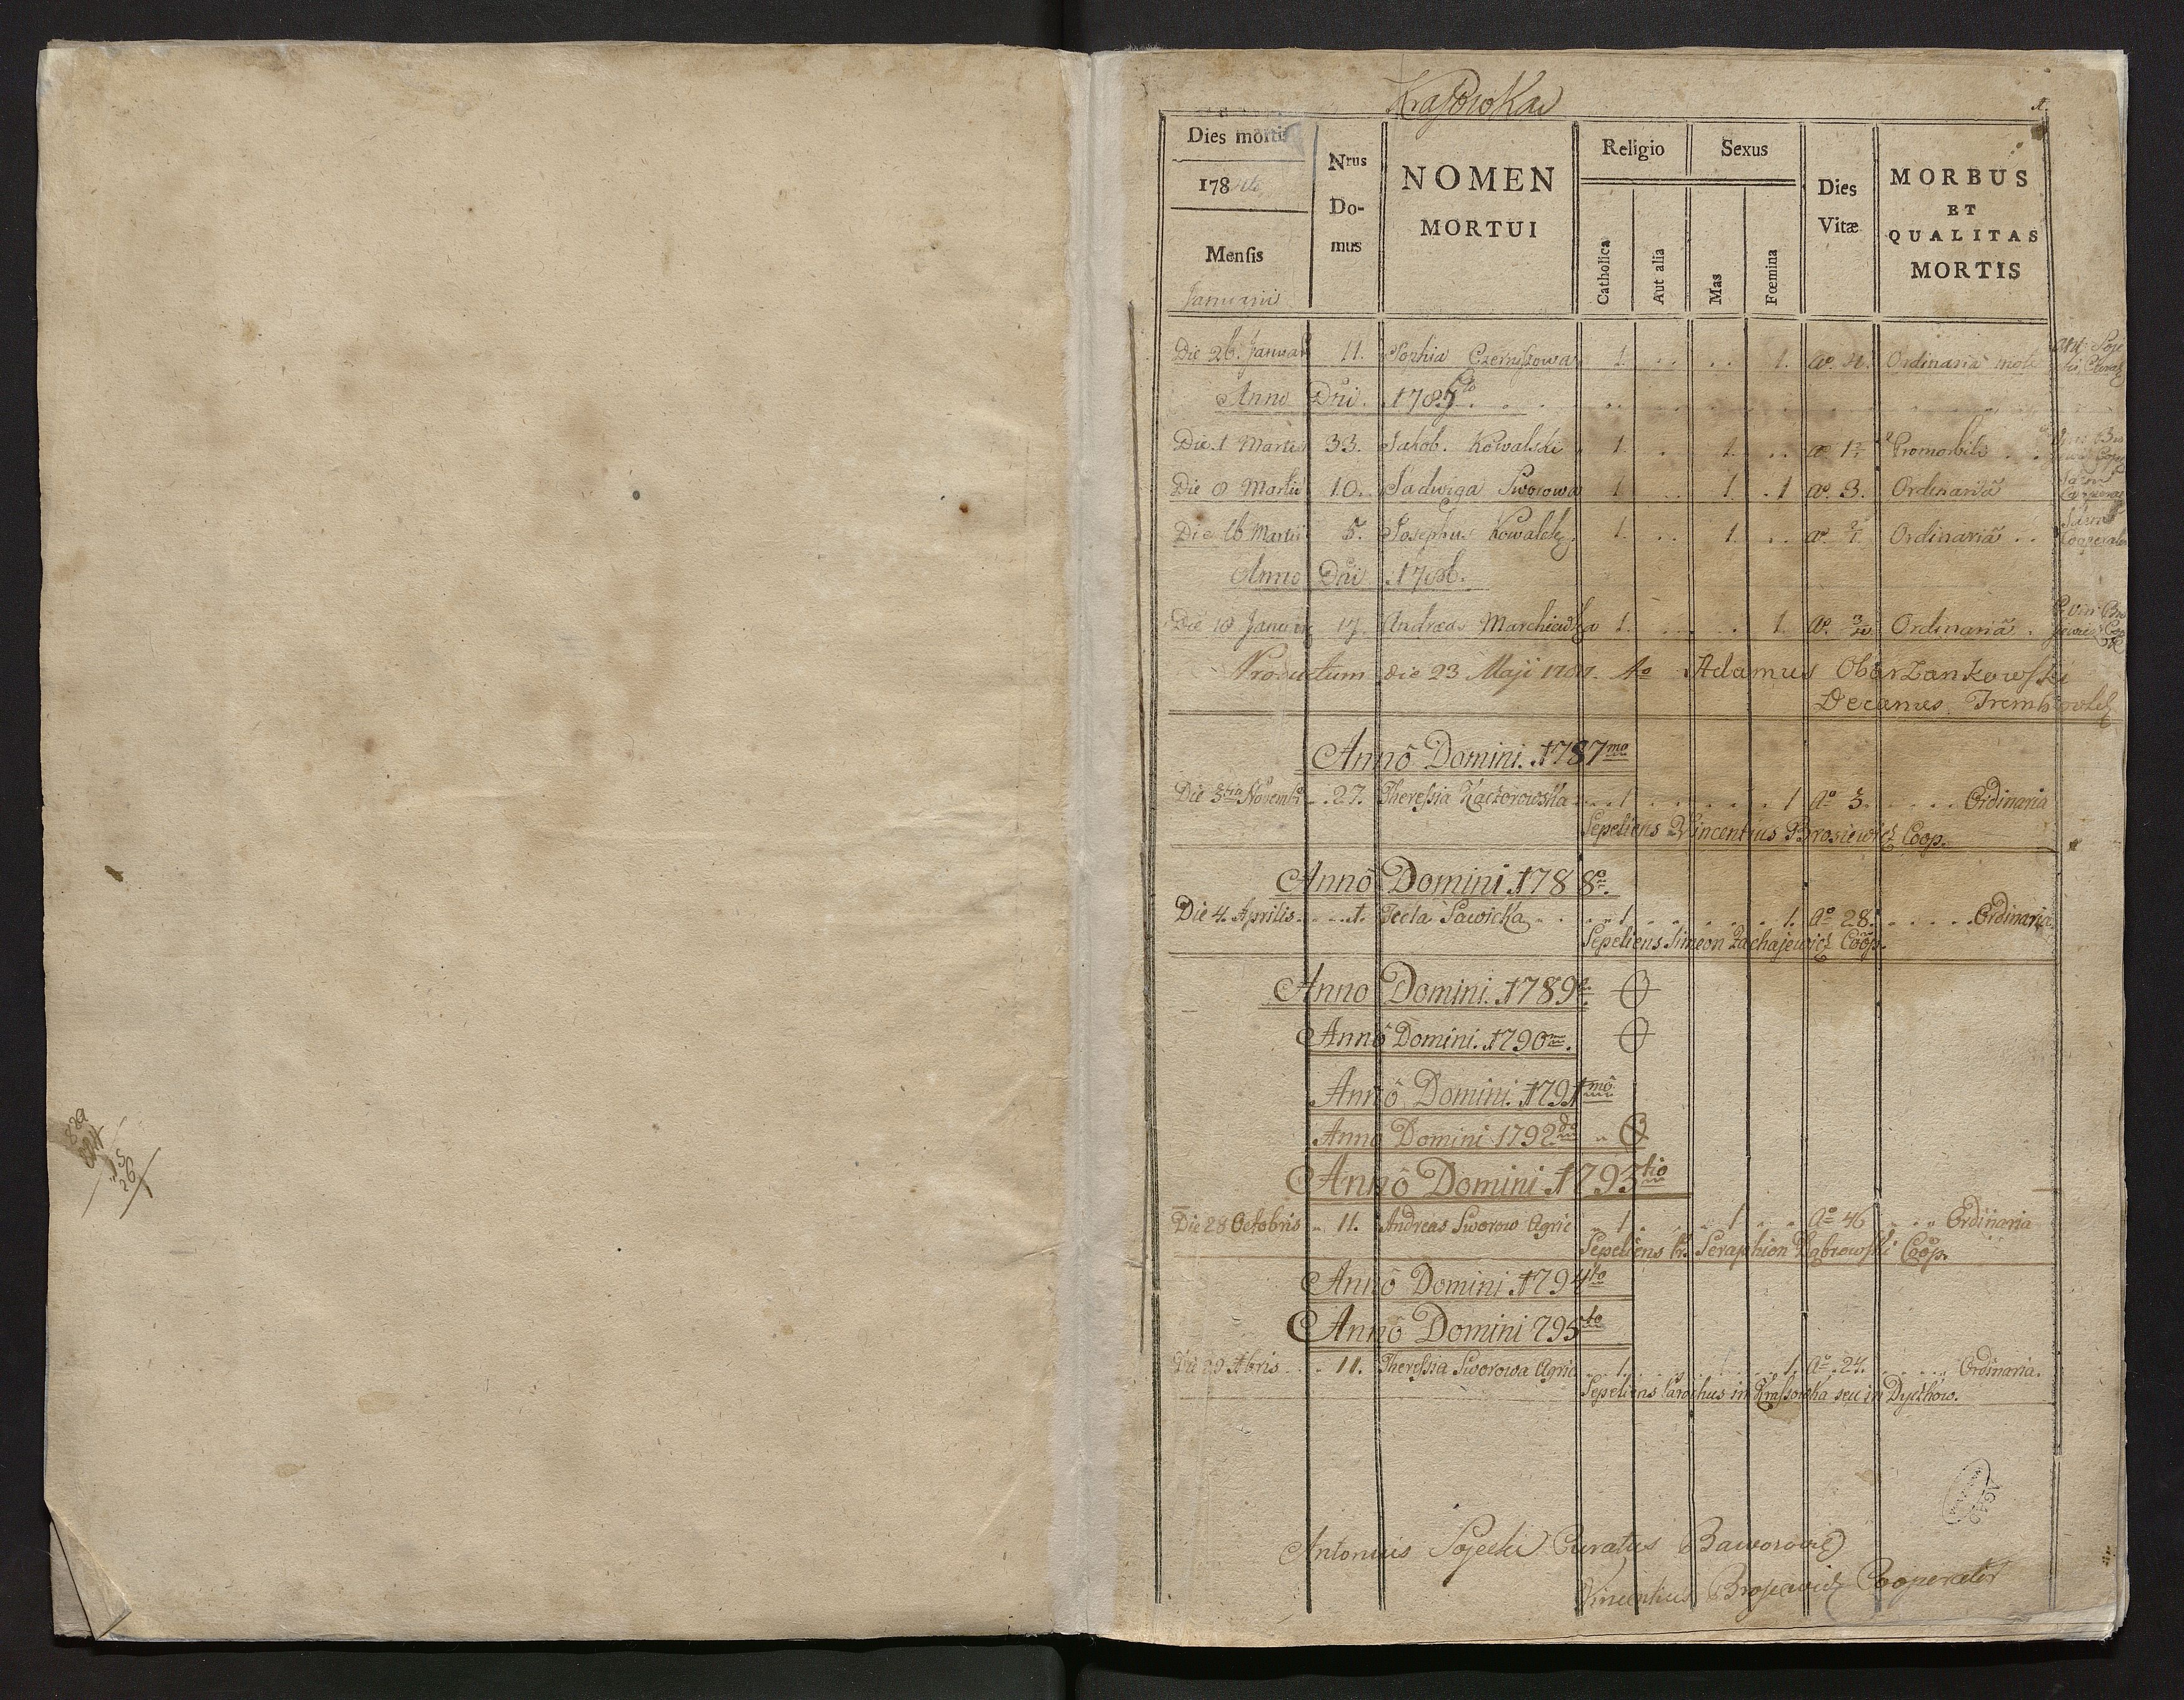 Krasowka
Dies mortis
178
Mensis
Januarii
Nrus Do- mus
NOMEN
MORTUI
Religio
Catholica
Aut alia
Sexus
Mas
Fœmina
Dies Vitæ
MORBUS
ET
QUALITAS
MORTIS
Die 26. Januar 11. Sophia 1. . . . . 1. Aº. Ordinaria
Anno Dni. 1785to
Die 1 Martii 33. Jakob. Kowalski 1. . 1. . . aº
Die 8 Martii 10. Jadwiga Sworowa 1. . . 1. . 1 aº. 3. Ordinaria
Die 16 Martii 5. Josephus 1. . . 1. . . aº. Ordinaria . .
Cooperator
Anno Dni 1786.
Die 18 Januarii 17. Andreas 1. . . . . 1. Aº. Ordinaria .
Productum die 23 Maji Adamus Obarzankowski
Decanus
Annô Domini. 1787mo
Die 3tia Novemb. . .27. Theressia Kaczorowska . . . 1 . . . . . . 1 Aº 3. . . . . Ordinaria
Sepeliens Vincentius Brosiewicz Coop.
Annô Domini 1788º.
Die 4. Aprilis. . . . .1. Tecla Sawicka . . . . . 1 . . . . . . 1. Aº 28. . . . . . Ordinaria.
Sepeliens Simeon Zachajewicz Coop.
Anno Domini. 1789
Annô Domini. 1790mo.
Annô Domini. 1791mô
Anno Domini 1792do
Annô Domini 1793tio
Die 28 Octobris 11. Andreas Sworow Agric 1 . . . 1 . . Aº 46 . . . Ordinaria
Sepeliens Seraphion Coop.
Annô Domini. 1794to
Annô Domini 795to
Die 29 11. Theressia Sworowa Agric . . 1. . . . . 1. Aº. 27. . . . . Ordinaria.
Sepeliens Parochus in Krassowka seu in Dyczkow.
Antonius Sojecki Curatus
Vincentius Brosiewicz Cooperator